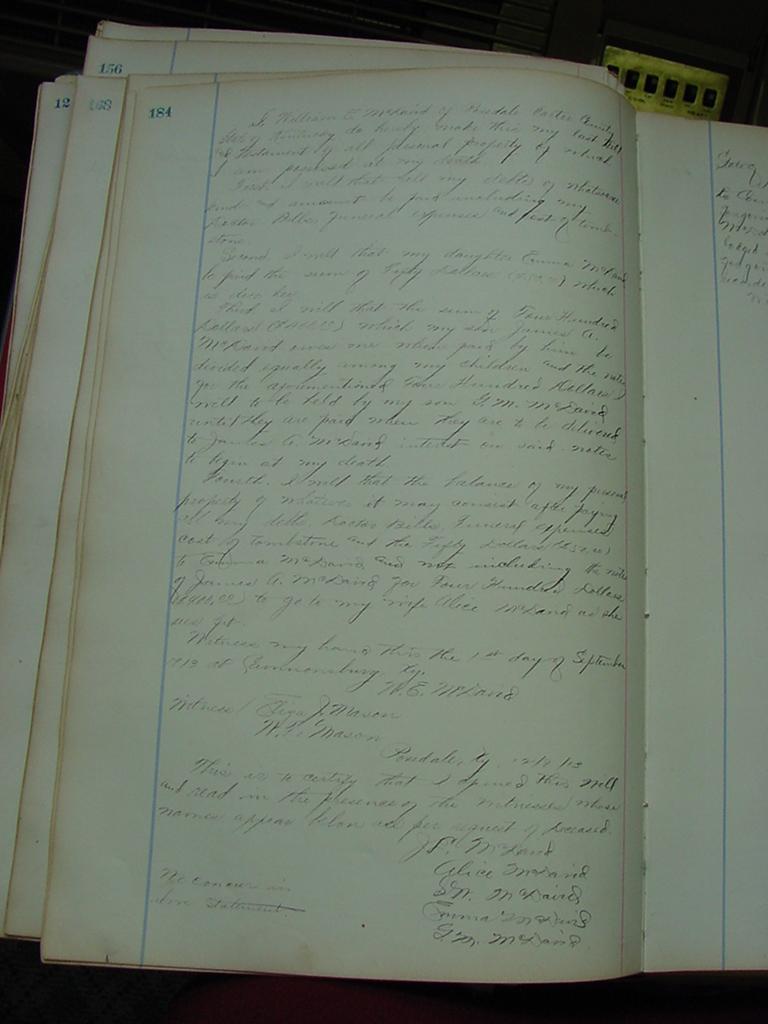 156
12
168
184
I William E McDavid of Rosedale Carter County
State of Kentucky do hereby make this my last will
& Testament of all personal property of which
I am possessed at my death
First I will that all my debts of whatsoever
kind & amount be paid including my
Doctor Bills, funeral expenses and cost of tomb-
stone.
Second I will that my daughter Emma McDavid
be paid the sum of Fifty Dollars ($50.00) which
is due her.
Third I will that the sum of Four Hundred
Dollars ($400.00) which my son James A.
McDavid owes me when paid by him be
divided equally among my children and the notes
for the aforementioned Four Hundred Dollars I
will to be held by my son G. M. McDavid
until they are paid when they are to be delivered
to James A. McDavid interest on said notes
to begin at my death
Fourth. I will that the balance of my personal
property of whatever it may consist after paying
all my debts, Doctor Bills, Funeral expenses
cost of tombstone and the Fifty Dollars ($50.00)
to Emma McDavid and not including the notes
of James A. McDavid for Four Hundred Dollars
($400.00) to go to my wife Alice McDavid as she
sees fit.
Witness my hand this the 1st day of September
1913 at Rosedale, Ky.
W. E. McDavid
Witness J. Mason
Mason
Rosedale, Ky. 12/9/13
This is to certify that I opened this will
and read in the presence of the witnesses whose
names appear below as per request of deceased.
McDavid
Alice McDavid
McDavid
Emma McDavid
G. M. McDavid
We concur in
above statement.
to